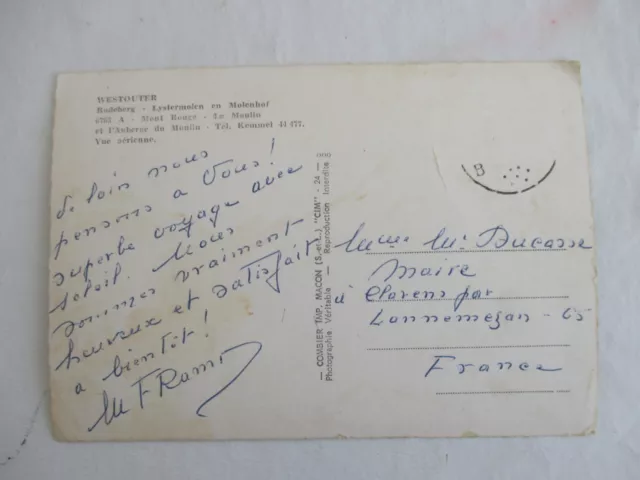 WESTOUTER
Rodeberg - Lystermolen en Molenhof
6763 A - Mont Rouge - Le Moulin
et l'Auberge du Moulin - Tél. Kemmel 44 477.
Vue aérienne.
de loin nous
pensons a Vous!
superbe voyage avec
soleil. Nous
sommes vraiment
heureux et satisfait
a bientôt!
— COMBIER IMP. MACON (S.-et-L.) "CIM" - 24 —
Photographie Véritable - Reproduction Interdite
B
Ducasse
Maire
a Clarens par
Lannemezan - 65
France